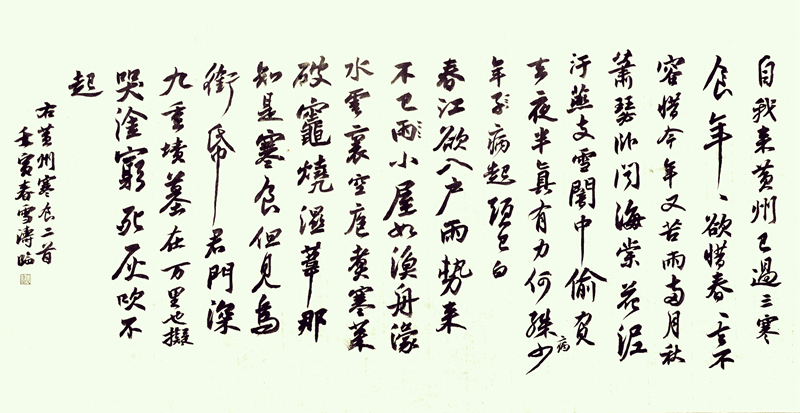 自我来黄州已過三寒
食年〻欲惜春〻去不
容惜今年又苦雨兩月秋
蕭瑟卧闻海棠花泥
汙燕支雪闇中偷負
去夜半真有力何殊少
病
年子病起頭已白
春江欲入户雨勢来
不已雨小屋如漁舟濛
水雲裏空庖煮寒菜
破竈燒濕葦那
知是寒食但見烏
銜帋君門深
九重墳墓在万里也擬
哭塗窮死灰吹不
起
右黄州寒食二首
壬寅春雪濤臨